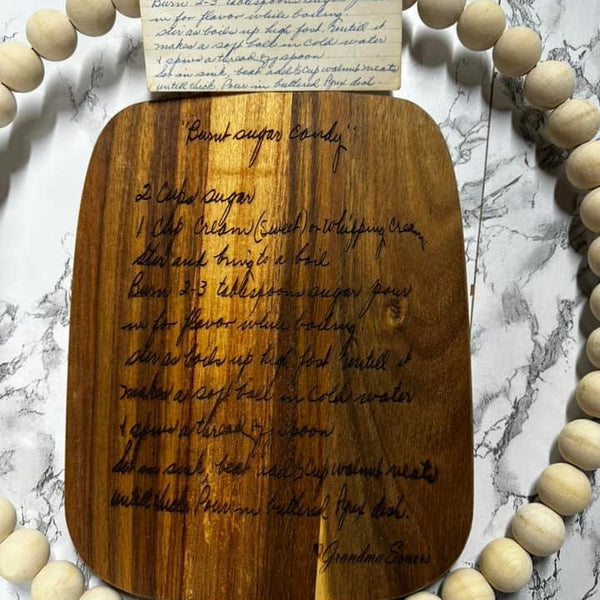 Burn 2-3 tablespoons sugar pour
in for flavor while boiling
stir as boils up high fast. Untill it
makes a soft ball in cold water
& spins a thread by spoon.
Set in sink, beat add ½ cup walnut meats
untill thick. Pour in buttered Pyex dish.
"Burnt sugar candy"
2 cups sugar
1 cup cream (sweet) or whipping cream
stir and bring to a boil
Burn 2-3 tablespoons sugar pour
in for flavor while boiling
stir as boils up high fast. Untill it
makes a soft ball in cold water
& spins a thread by spoon
Set in sink, beat add ½ cup walnut meats
untill thick. Pour in buttered Pyex dish.
Grandma Sowers